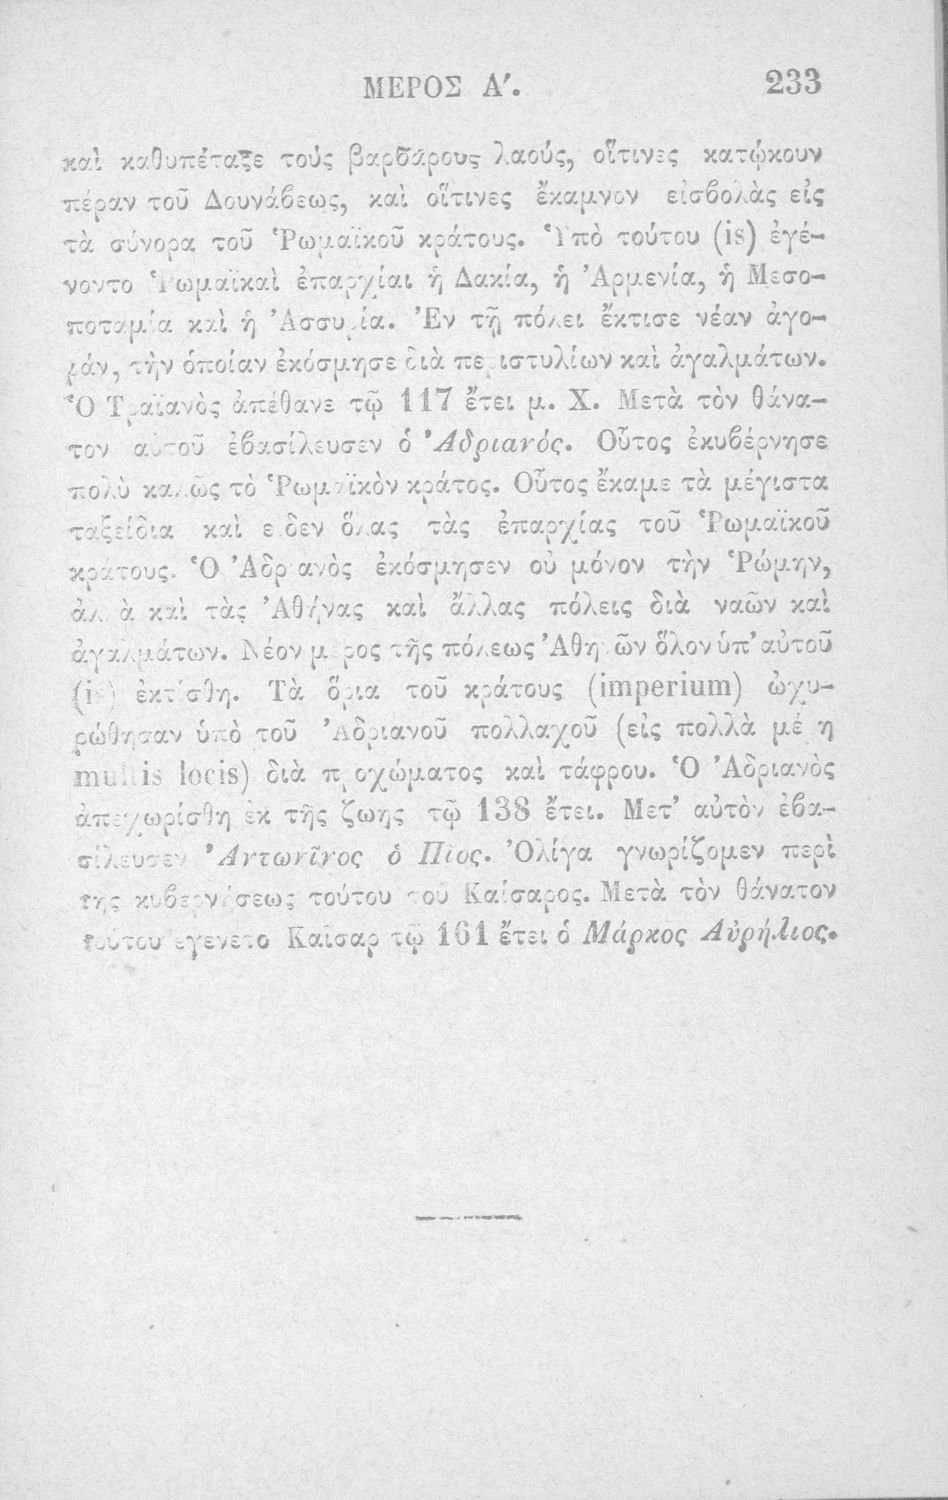 ΜΕΡΟΣ Α΄. 233
καὶ καθυπέταξε τοὺς βαρβάρους λαούς, οἵτινες κατῴκουν
πέραν τοῦ Δουνάβεως, καὶ οἵτινες ἔκαμνον εἰσβολὰς εἰς
τὰ σύνορα τοῦ Ῥωμαϊκοῦ κράτους. Ὑπὸ τούτου (is) ἐγέ-
νοντο Ῥωμαϊκαὶ ἐπαρχίαι ἡ Δακία, ἡ Ἀρμενία, ἡ Μεσο-
ποταμία καὶ ἡ Ἀσσυρία. Ἐν τῇ πόλει ἔκτισε νέαν ἀγο-
ράν, τὴν ὁποίαν ἐκόσμησε διὰ περιστυλίων καὶ ἀγαλμάτων.
Ὁ Τραϊανὸς ἀπέθανε τῷ 117 ἔτει μ. Χ. Μετὰ τὸν θάνα-
τον αὐτοῦ ἐβασίλευσεν ὁ Ἀδριανός. Οὗτος ἐκυβέρνησε
πολὺ καλῶς τὸ Ῥωμαϊκὸν κράτος. Οὗτος ἔκαμε τὰ μέγιστα
ταξείδια καὶ εἶδεν ὅλας τὰς ἐπαρχίας τοῦ Ῥωμαϊκοῦ
κράτους. Ὁ Ἀδριανὸς ἐκόσμησεν οὐ μόνον τὴν Ῥώμην,
ἀλλὰ καὶ τὰς Ἀθήνας καὶ ἄλλας πόλεις διὰ ναῶν καὶ
ἀγαλμάτων. Νέον μέρος τῆς πόλεως Ἀθηνῶν ὅλον ὑπ' αὐτοῦ
(is) ἐκτίσθη. Τὰ ὅρια τοῦ κράτους (imperium) ὠχυ-
ρώθησαν ὑπὸ τοῦ Ἀδριανοῦ πολλαχοῦ (εἰς πολλὰ μέρη
multis locis) διὰ προχώματος καὶ τάφρου. Ὁ Ἀδριανὸς
ἀπεχωρίσθη ἐκ τῆς ζωῆς τῷ 138 ἔτει. Μετ' αὐτὸν ἐβα-
σίλευσεν Ἀντωνῖνος ὁ Πῖος. Ὀλίγα γνωρίζομεν περὶ
τῆς κυβερνήσεως τούτου τοῦ Καίσαρος. Μετὰ τὸν θάνατον
τούτου ἐγένετο Καῖσαρ τῷ 161 ἔτει ὁ Μάρκος Αὐρήλιος.